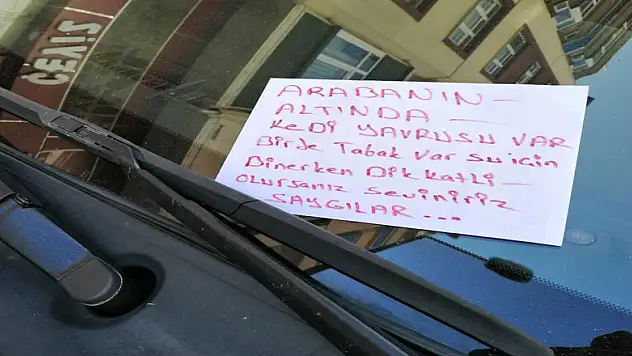 ARABANIN —
ALTINDA —
KeDi YAVRUSU VAR
Birde Tabak Var su icin
Binerken DikKatli —
OLURSANIZ SeviNiRiZ
SAYGILAR...